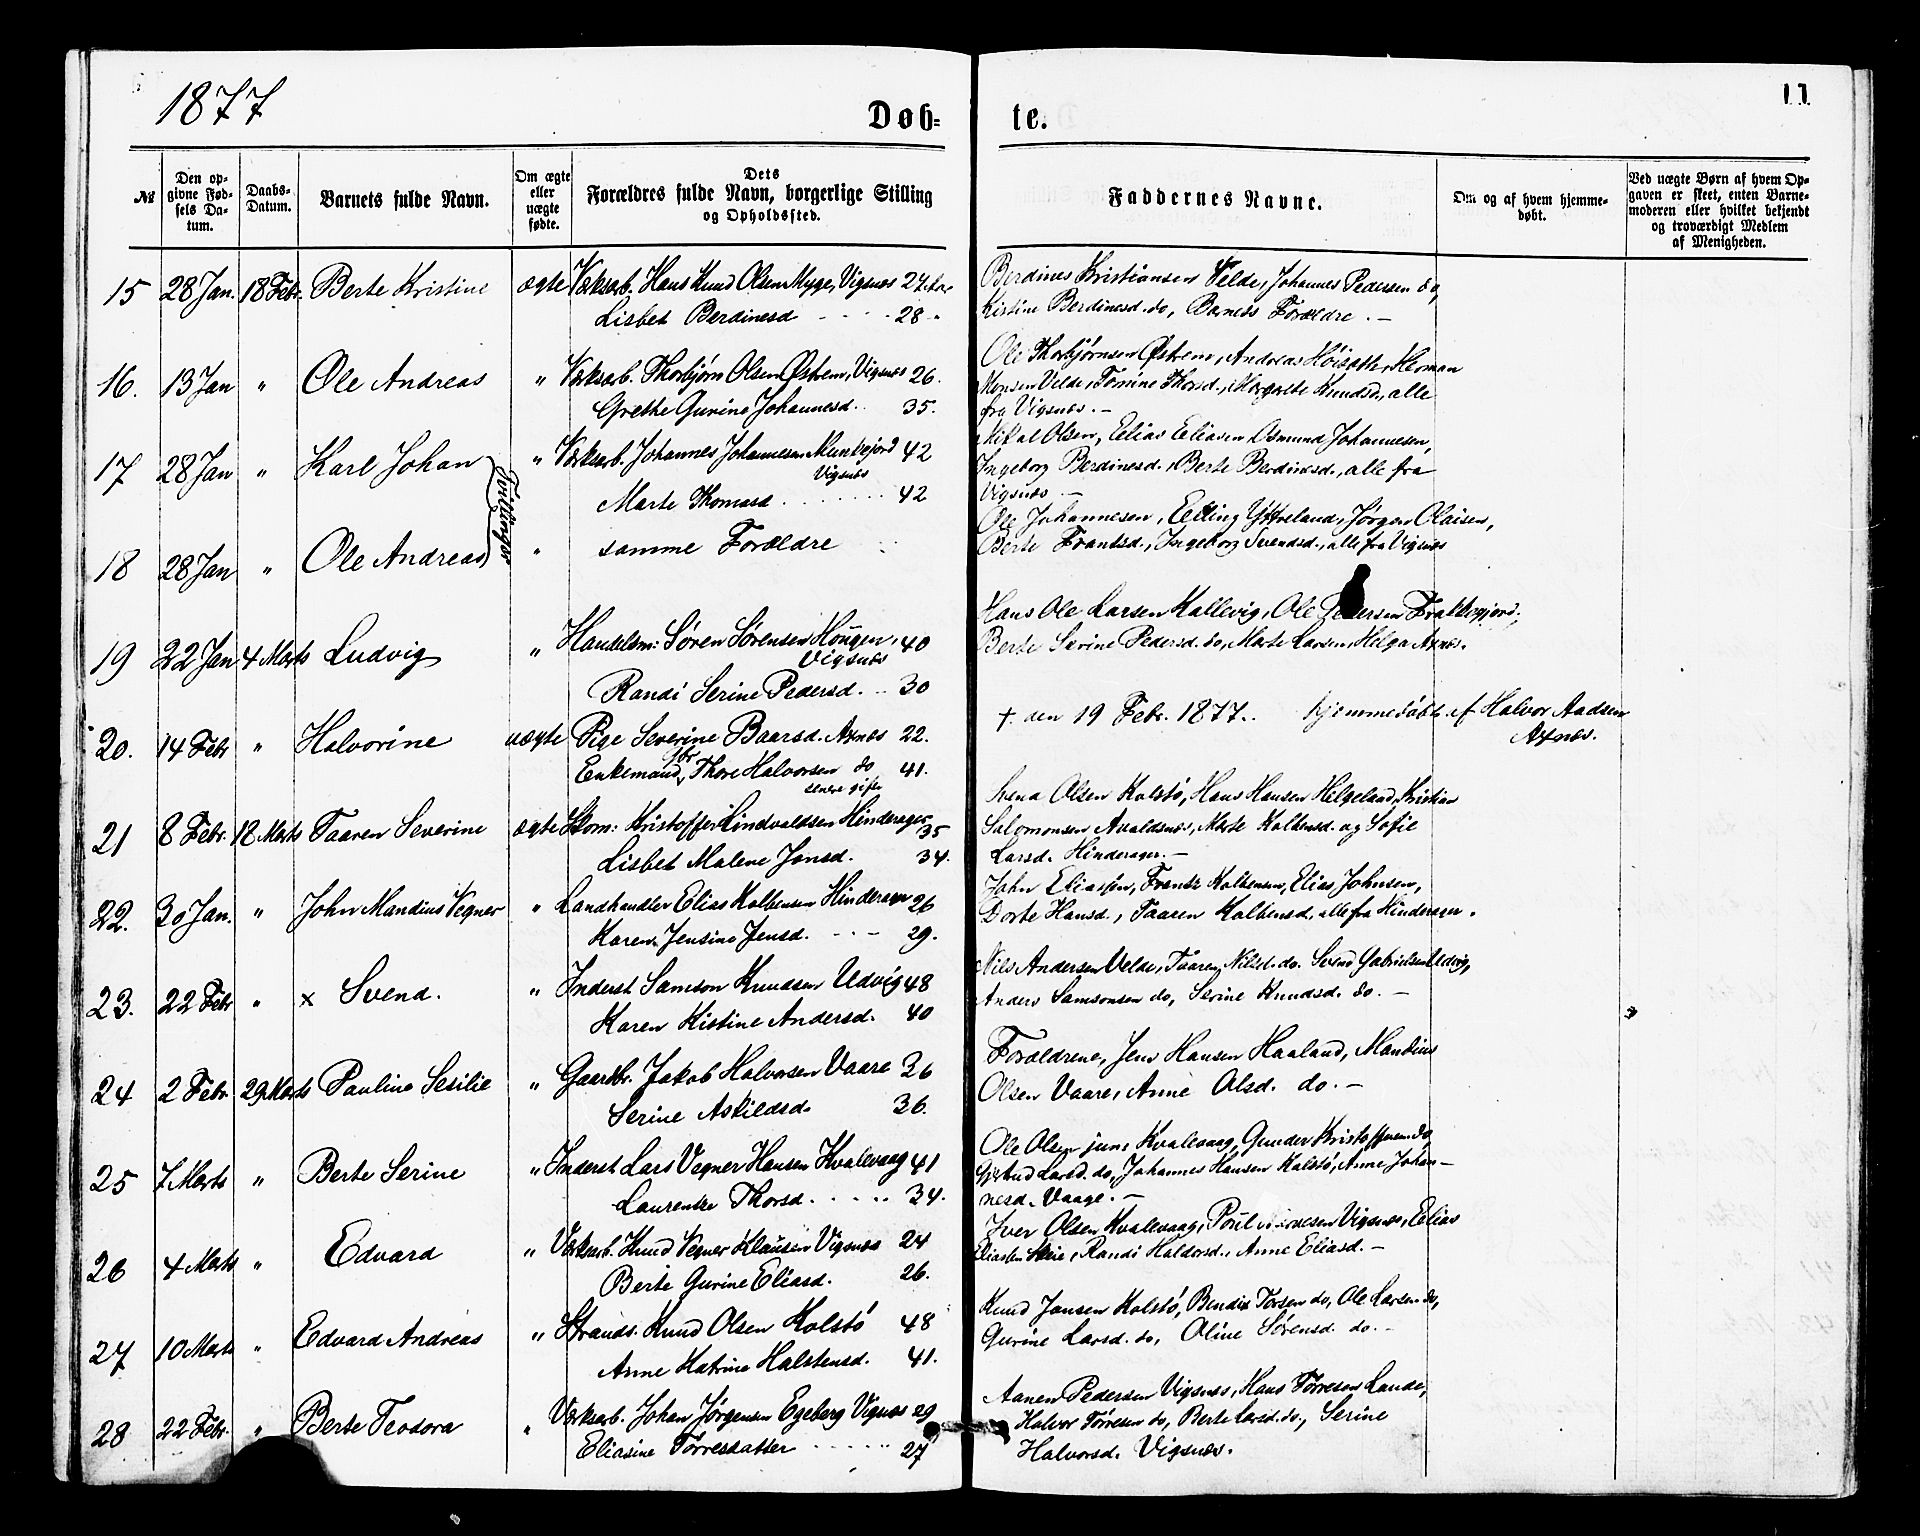 1877
Døb-
te.
11
№
Den op-
givne Fød-
sels Da-
tum.
Daabs-
Datum.
Barnets fulde Navn.
Om ægte
eller
uægte
fødte.
Dets
Forældres fulde Navn, borgerlige Stilling
og Opholdssted.
Faddernes Navne.
Om og af hvem hjemme-
døbt.
Ved uægte Børn af hvem Op-
gaven er skeet, enten Barne-
moderen eller hvilket bekjendt
og troværdigt Medlem
af Menigheden.
15 28 Jan. 18 Febr. Berte Kristine ægte Værksarb. Hans Knud Olsen Myge, Vigsnæs 27 Aar
Lisbet Berdinesd 28 "
Berdines Kristiansen Velde, Johannes Pedersen do,
Kistine Berdinesd. do, Barnets Forældre. —
16. 13 Jan " Ole Andreas " Værksarb. Thorbjørn Olsen Østrem, Vigsnæs 26.
Grethe Gurine Johannesd. 35.
Ole Thorbjørnsen Østrem, Andreas Herman
Monsen Velde, Thorsd., Margrete Knudsd., alle
fra Vigsnæs. —
17 28 Jan " Karl Johan " Værksarb. Johannes Johannesen Munkejord 42
Vigsnæs
Marte Thomasd 42
Tvillinger
Mikal Olsen, Elias Eliasen Osmund Johannesen,
Ingeborg Berdinesd., Berte Berdinesd., alle fra
Vigsnæs —
18 28 Jan " Ole Andreas " samme Forældre
Ole Johannesen, Elling Yttreland, Jørgen Olaisen,
Berte Frantsd., Ingeborg Svendsd., alle fra Vigsnæs
19 22 Jan 4 Marts Ludvig " Handelsm: Søren Sørensen Hougen, 40
Vigsnæs
Randi Serine Pedersd. 30
Hans Ole Larsen Kallevig, Ole Pedersen
Berte Serine Pedersd. do, Marte Larsen, Helga Axnæs.
20. 14 Febr " Halvorine uægte Pige Severine Baarsd. Axnæs 22.
Enkemand, Thore Halvorsen do 41.
senere gifte
† den 19 Febr. 1877. hjemmedøbt af Halvor Aadsen
Axnæs.
21 8 Febr. 18 Marts Taaren Severine ægte Skom: Kristoffer Hinderager 35
Lisbet Malene Jonsd. 34.
Svend Olsen Kolstø, Hans Hansen Helgeland, Kristian
Salomonsen Avaldsnæs, Marte Kolbensd. og Sofie
Larsd. Hinderager. —
22. 30 Jan. " John Mandius Vegner " Landhandler Elias Kolbensen Hinderager 26
Karen Jensine Jensd. 29.
John Eliassen, Frantz Kolbensen, Elias Johnsen,
Dorte Hansd., Taaren Kolbensd., alle fra Hinderager.
23. 22 Febr " × Svend. " Inderst Samson Knudsen Udvig 48
Karen Kistine Andersd. 40
Nils Andersen Velde, Taaren Nilsd. do. Svend Gabrielsen Udvig,
Anders Samsonsen do, Serine Knudsd. do. —
24 2 Febr. 29 Marts Pauline Sesilie " Gaardbr. Jakob Halvorsen Vaare 36
Serine Askildsd. 36.
Forældrene, Jens Hansen Haaland, Mandius
Olsen Vaare, Anne Olsd. do. —
25 7 Marts " Berte Serine " Inderst Lars Vegner Hansen Kvalevaag 41
Laurentze Thorsd. 34.
Ole Olsen jun: Kvalevaag, Gunder Kristoffersen do
Gjertrud Larsd. do, Johannes Hansen Kolstø, Anne Johan-
nesd. Vaage. —
26 4 Marts " Edvard " Værksarb. Knud Vegner Klausen Vigsnæs 24
Berte Gurine Eliasd. 26.
Iver Olsen Kvalevaag, Poul Vigsnæs, Elias
Eliassen Randi Haldorsd., Anne Eliasd. —
27 10 Marts " Edvard Andreas " Strands. Knud Olsen Kolstø 48
Anne Katrine Halstensd. 41.
Knud Jansen Kolstø, Bendix Torsen do, Ole Larsen do,
Gurine Larsd. do, Oline Sørensd. do. —
28 22 Febr. " Berte Teodora " Værksarb. Johan Jørgensen Egeberg Vigsnæs 29
Eliasine Tørresdatter 27
Aanen Pedersen Vigsnæs, Hans Tørresen Lande,
Halvor Tørresen do, Berte Larsd. do, Serine
Halvorsd. Vigsnæs.